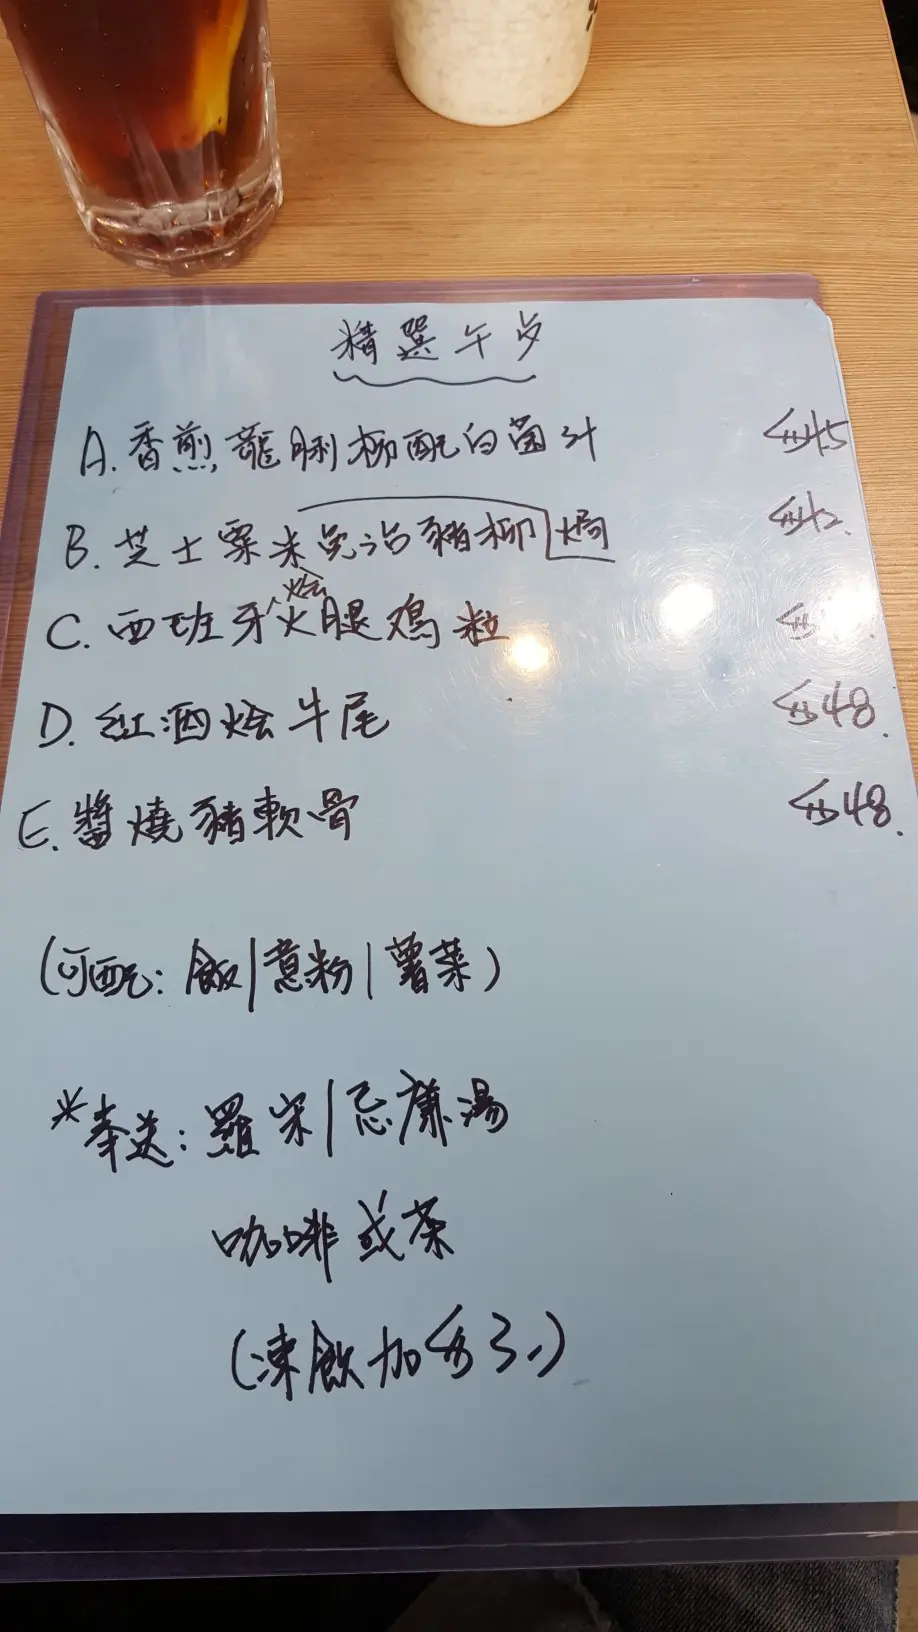 精選午步
A. 香煎龍脷柳配白菌汁 $45
B. 芝士粟米免治豬柳焗 $42.
C. 西班牙烩火腿鸡粒
D. 红酒烩牛尾 $48.
E. 醬燒豬軟骨 $48.
(可配: 飯|意粉|薯菜)
*奉送: 羅宋|忌廉湯
咖啡或茶
(凍飲加$3.)